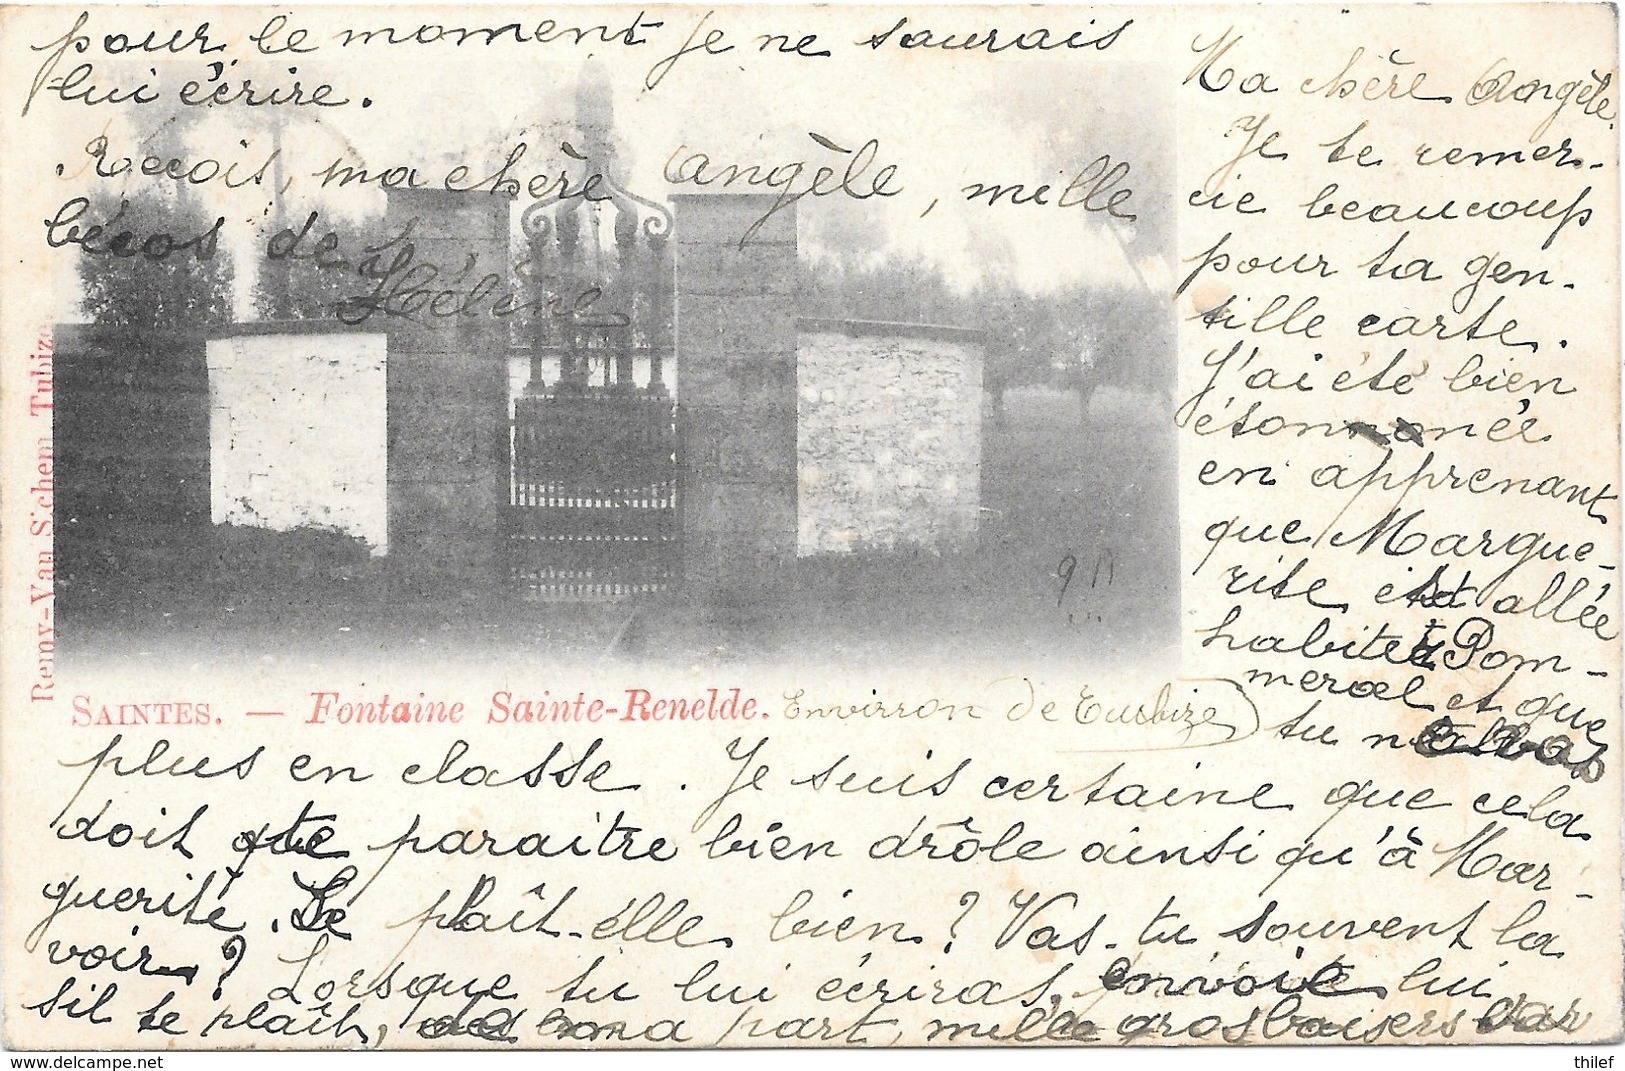 Ma chère Angèle.
Je te remer-
cie beaucoup
pour ta gen-
tille carte.
J'ai été bien
étonnée
en apprenant
que Margue-
rite est allée
habiter Pom-
merœl et que
tu n'es pas
plus en classe. Je suis certaine que cela
doit te paraitre bien drôle ainsi qu'à Mar-
guerite. Se plaît-elle bien? Vas-tu souvent la
voir? Lorsque tu lui écriras, envoie lui,
s'il te plaît, de ma part, mille gros baisers car
pour le moment je ne saurais
lui écrire.
Recois, ma chère Angèle, mille
bécos de
Hélène
SAINTES. — Fontaine Sainte-Renelde.
Environ de Tubize
Remy-Van S'chen Tubize
thilef